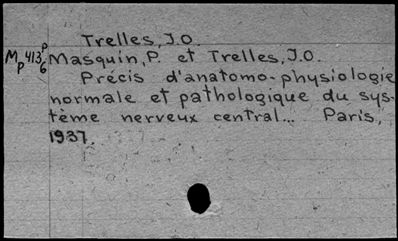 Trelles, J.O.
Mp413p6 Masquin, P. et Trelles, J.O.
Précis d'anatomo-physiologie
normale et pathologique du sys-
tème nerveux central... Paris,
1937.